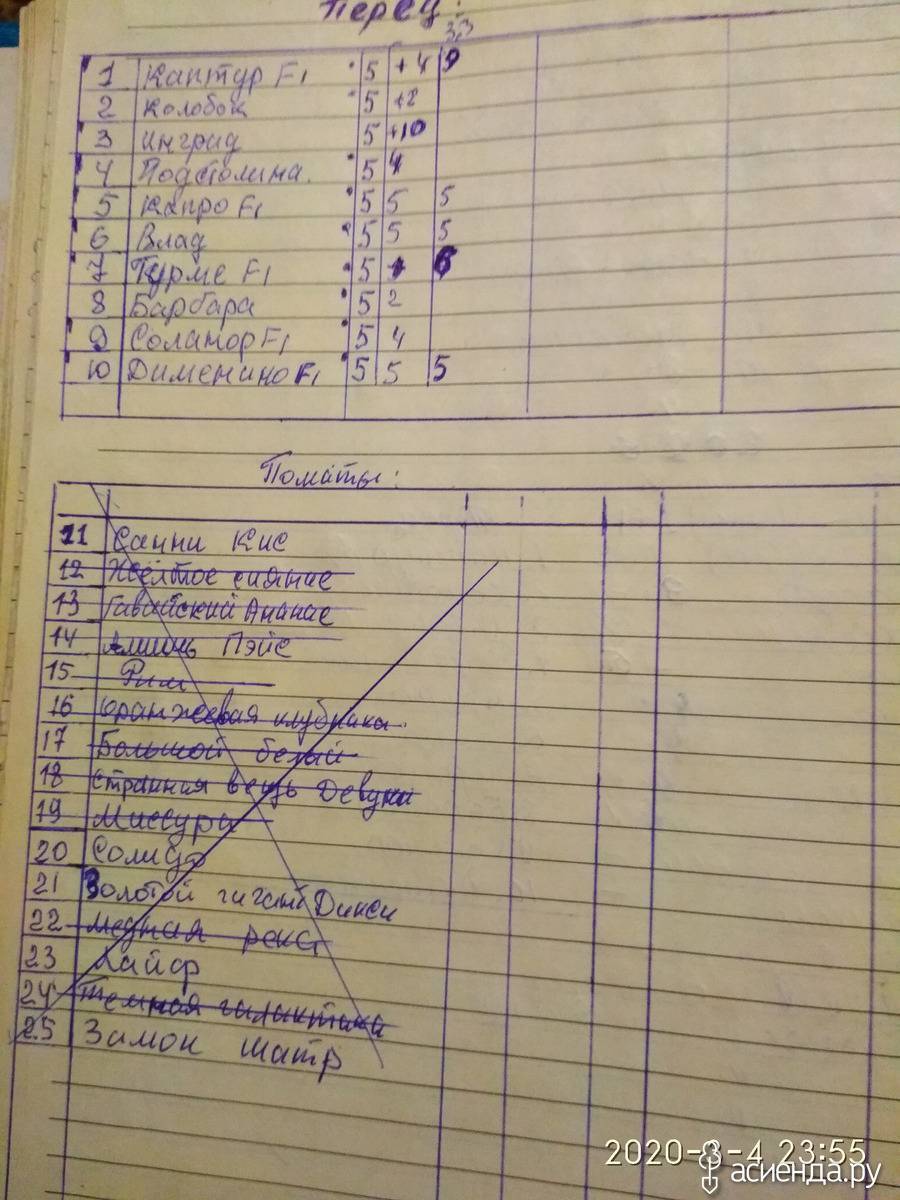 Перец:
33
1 Каптур F1 5 +4 9
2 Колобок 5 +2
3 Ингрид 5 +10
4 Подстолина. 5 4
5 Капро F1 5 5 5
6 Влад 5 5 5
7 Турме F1 5 6
8 Барбара 5 2
9 Соланор F1 5 4
10 Дименино F1 5 5 5
Томаты:
11 Санни Кис
12 Жёлтое сияние
13 Гавайский Ананас
14 Амишь Пэйс
15 Рим
16 Оранжевая клубника.
17 Большой белый
18 Странная вещь Девуки
19 Миссури
20 Солидо
21 Золотой гигант Дикси
22 Медная река
23 Лайф
24 Темная галактика
25 Замок шатр
2020-3-4 23:55
асиенда.ру